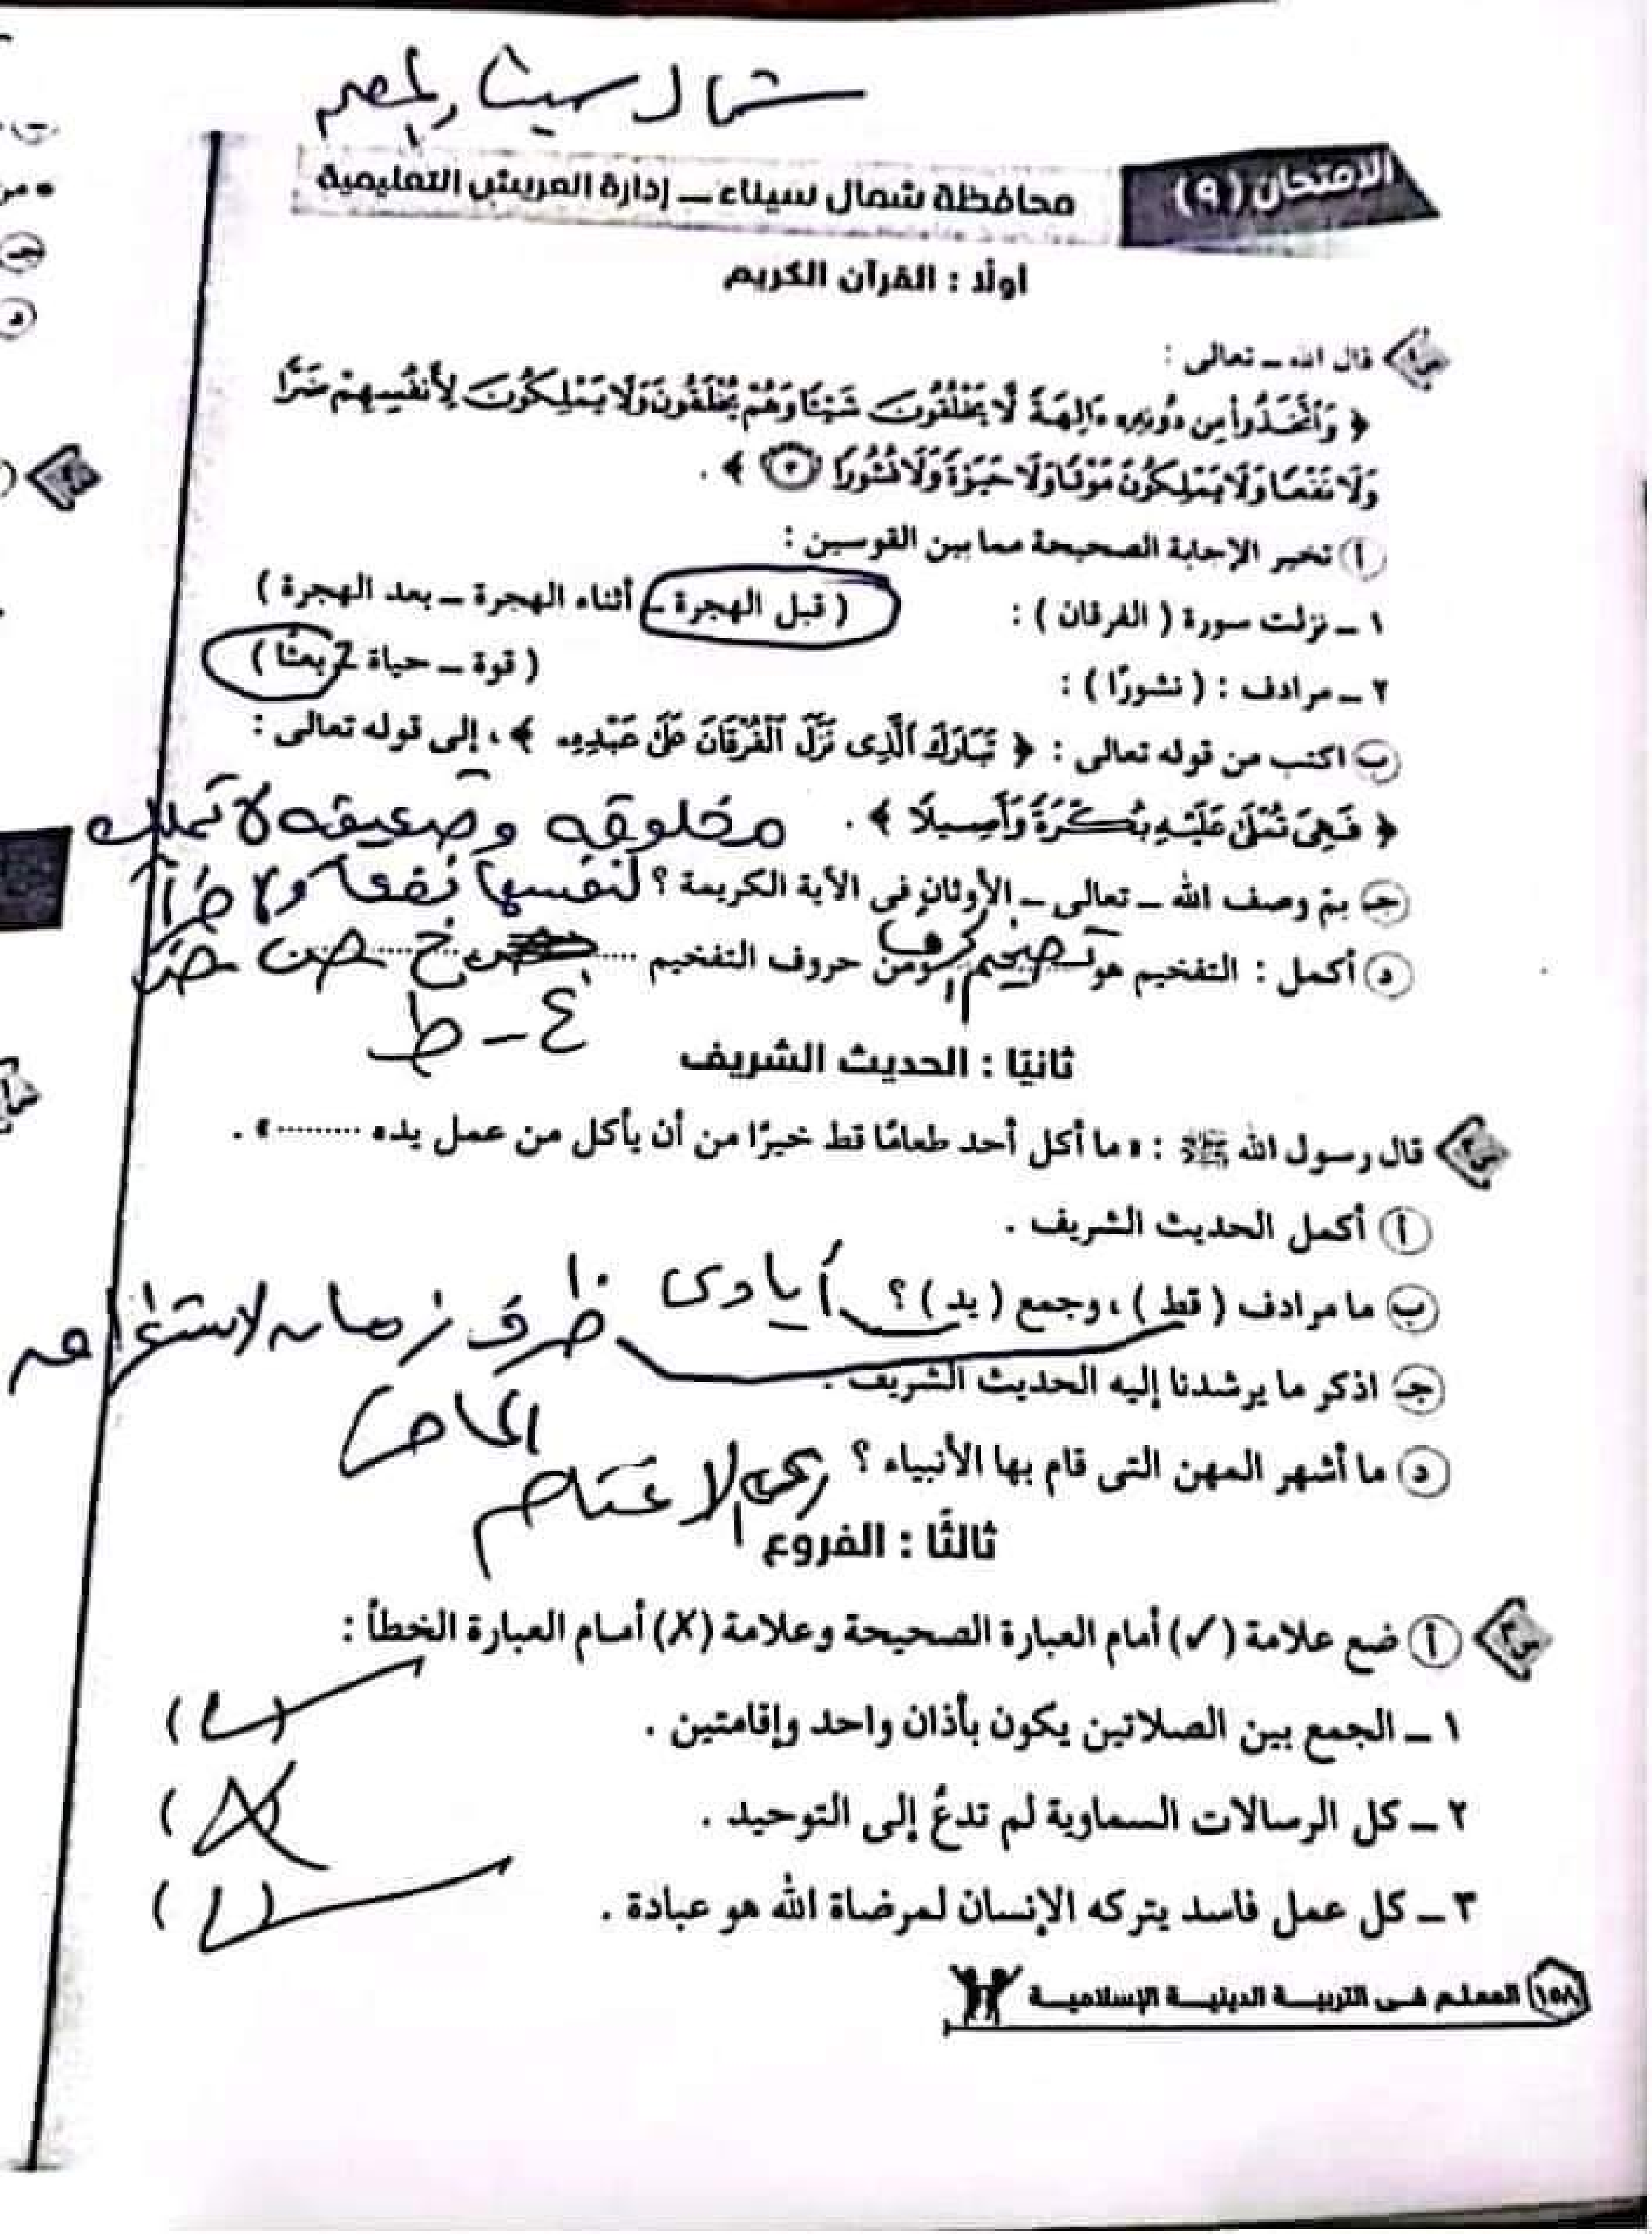 شمال سيناء
الامتحان (٩) محافظة شمال سيناء ــ إدارة العريش التعليمية
أولًا : القرآن الكريم
س١ قال الله ــ تعالى :
﴿ وَٱتَّخَذُوا۟ مِن دُونِهِۦٓ ءَالِهَةً لَّا يَخْلُقُونَ شَيْـًٔا وَهُمْ يُخْلَقُونَ وَلَا يَمْلِكُونَ لِأَنفُسِهِمْ ضَرًّا
وَلَا نَفْعًا وَلَا يَمْلِكُونَ مَوْتًا وَلَا حَيَوٰةً وَلَا نُشُورًا ٣ ﴾ .
أ تخير الإجابة الصحيحة مما بين القوسين :
١ ــ نزلت سورة ( الفرقان ) : ( قبل الهجرة ــ أثناء الهجرة ــ بعد الهجرة )
٢ ــ مرادف : ( نشورًا ) : ( قوة ــ حياة ــ بعثًا )
ب اكتب من قوله تعالى : ﴿ تَبَارَكَ ٱلَّذِى نَزَّلَ ٱلْفُرْقَانَ عَلَىٰ عَبْدِهِۦ ﴾ ، إلى قوله تعالى :
﴿ فَهِىَ تُمْلَىٰ عَلَيْهِ بُكْرَةً وَأَصِيلًا ﴾ . مخلوقه وضعيفه لا تملك
جـ بمَ وصف الله ــ تعالى ــ الأوثان فى الآية الكريمة ؟ لنفسها نفعا ولا ضرًا
د أكمل : التفخيم هو تضخيم الحرف ومن حروف التفخيم ......... خ ص ض
غ - ط
ثانيًا : الحديث الشريف
س٢ قال رسول الله ﷺ : « ما أكل أحد طعامًا قط خيرًا من أن يأكل من عمل يده ......... » .
أ أكمل الحديث الشريف .
ب ما مرادف ( قط ) ، وجمع ( يد ) ؟ أيادى ظرف زمان لاستغراق
جـ اذكر ما يرشدنا إليه الحديث الشريف .
الماضى
د ما أشهر المهن التى قام بها الأنبياء ؟ رعى الاغنام
ثالثًا : الفروع
س٣ أ ضع علامة (✓) أمام العبارة الصحيحة وعلامة (X) أمام العبارة الخطأ :
١ ــ الجمع بين الصلاتين يكون بأذان واحد وإقامتين . (✓)
٢ ــ كل الرسالات السماوية لم تدعُ إلى التوحيد . (X)
٣ ــ كل عمل فاسد يتركه الإنسان لمرضاة الله هو عبادة . (✓)
١٥٨ المعلم فى التربية الدينية الإسلامية